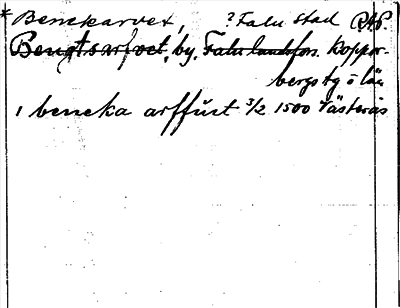 * Benekarvet, ? Falu stad RAP.
Bengtsarfvet, by. Falu landsfös. Koppar-
bergs tg o län
i beneka arffuet 3/2 1500 Västerås